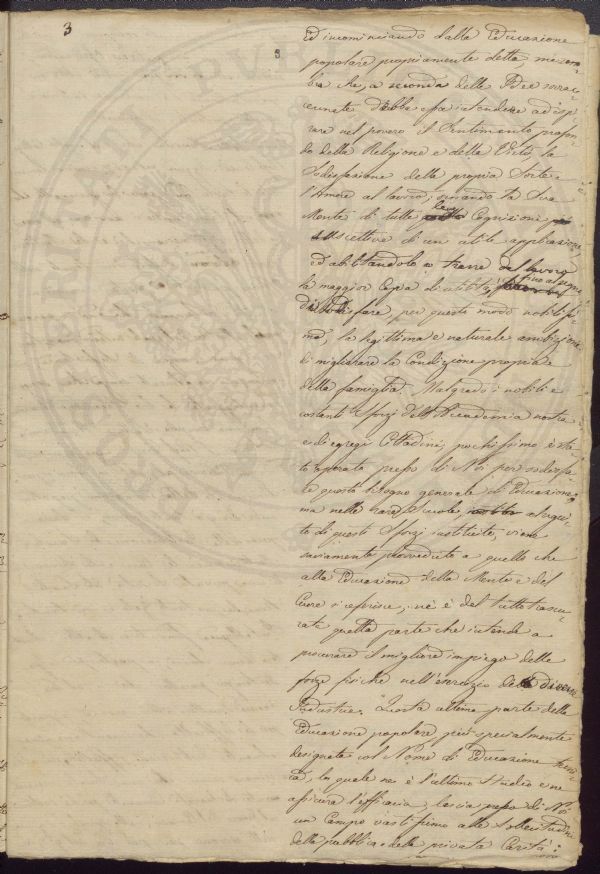 3
3.
Ed incominciando dalla Educazione
popolare propriamente detta
bra che, a seconda delle Idee sovrac
cennate debba essa intendere ad ispi
rare nel povero il Sentimento profon
do della Religione e della Virtù, la
Sodisfazione della propria Sorte e
l'Amore al lavoro; ornando la Sua
Mente di tutte le Cognizioni
suscettive di un utile applicazione,
ed abilitandolo a trarre dal lavoro
la maggior Copia di utilità, fino al segno
di sodisfare, per questo modo nobilissi
mo, la legittima e naturale ambizione
di migliorare la Condizione propria e
della famiglia. Malgrado i nobili e
costanti sforzi dell'Accademia nostra
e di egregi Cittadini, pochissimo è sta
to operato presso di Noi per sodisfa
re questo bisogno generale di Educazione,
ma nelle rare Scuole, a segui
to di questi sforzi instituite, viene
saviamente provveduto a quello che
alla Educazione della Mente e del
Cuore si riferisce; nè è del tutto trascu
rata quella parte che intende a
procurare il migliore impiego delle
forze fisiche nell'esercizio delle diverse
Industrie. Questa ultima parte della
Educazione popolare, più specialmente
designata col Nome di Educazione tecni
ca, la quale ne è l'ultimo Studio e ne
assicura l'efficacia, lascia presso di Noi
un Campo vastissimo alle sollecitudini
della pubblica e della privata Carità: